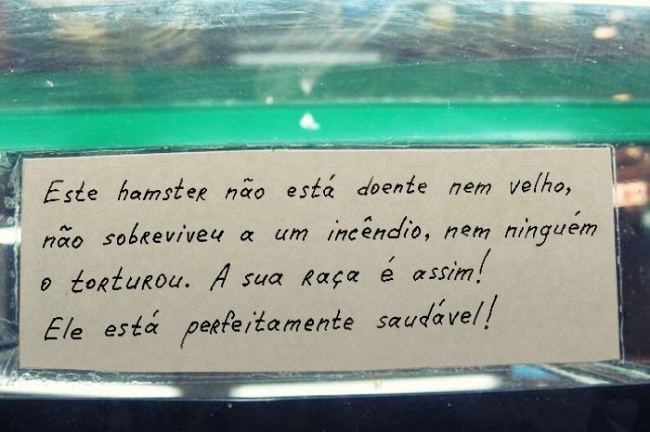 Este hamster não está doente nem velho,
não sobreviveu a um incêndio, nem ninguém
o torturou. A sua raça é assim!
Ele está perfeitamente saudável!